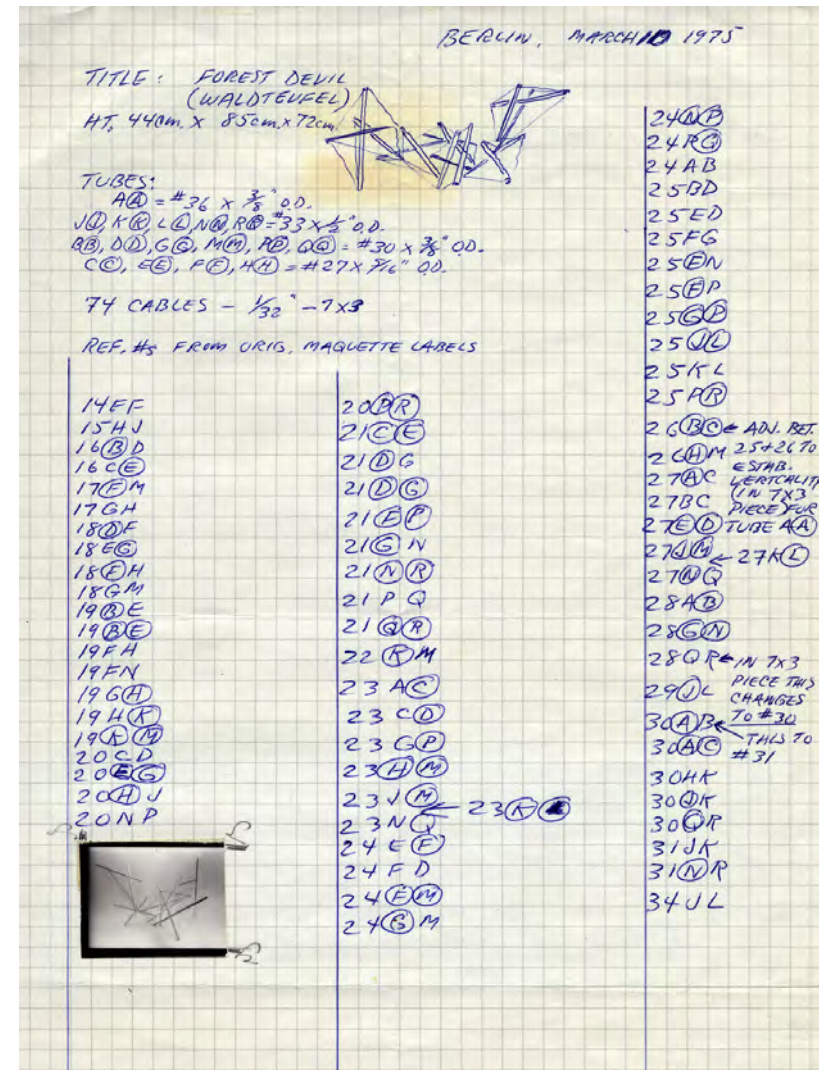 BERLIN, MARCH 10 1975
TITLE: FOREST DEVIL
(WALDTEUFEL)
HT. 44cm. X 85cm. x 72cm.
TUBES:
AⒶ = #36 x 3/8" O.D.
JⒿ, KⓀ, LⓁ, NⓃ, RⓇ = #33 x 1/2" O.D.
BⒷ, DⒹ, GⒼ, MⓂ, PⓅ, QⓆ = #30 x 3/8" O.D.
CⒸ, EⒺ, FⒻ, HⒽ = #27 x 5/16" O.D.
74 CABLES - 1/32" - 7x3
REF. #s FROM ORIG. MAQUETTE LABELS
14EF
15HJ
16ⒷD
16CⒺ
17ⒻM
17GH
18ⒹF
18EⒼ
18ⒺH
18GM
19ⒷE
19ⒷⒺ
19FH
19FN
19GⒽ
19HⓀ
19ⓀⓂ
20CD
20ⒺⒼ
20ⒽJ
20NP
20ⓅⓇ
21ⒸⒺ
21ⒹG
21ⒹⒼ
21ⒺⓅ
21ⒼN
21ⓃⓇ
21PQ
21ⓆⓇ
22ⓀM
23AⒸ
23CⒹ
23GⓅ
23ⒽⓂ
23JⓂ
23NⓆ ← 23Ⓚ
24EⒻ
24FD
24ⒻⓂ
24ⒼM
24ⓃⓅ
24RⒼ
24AB
25BD
25ED
25FG
25ⒺN
25ⒻP
25ⒼⓅ
25ⒿⓁ
25KL
25PⓇ
26ⒷⒸ ← ADJ. BET.
26ⒽM 25+26 TO
27ⒶC ESTAB. VERTCALITY
27BC (IN 7X3 PIECE) FOR
27ⒺⒹ TUBE AⒶ
27ⒿⓂ ← 27KⓁ
27ⓃQ
28AⒷ
28ⒼⓃ
28QR ← IN 7X3
29ⒿL PIECE THIS CHANGES
30ⒶB TO #30
30ⒶⒸ ← THIS TO #31
30HK
30ⒿK
30ⓆR
31JK
31ⓃR
34JL